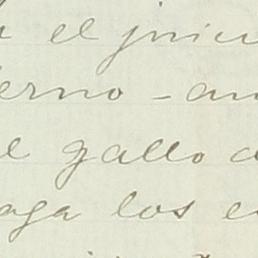 el juici
erno - an
el gallo d
aga los e